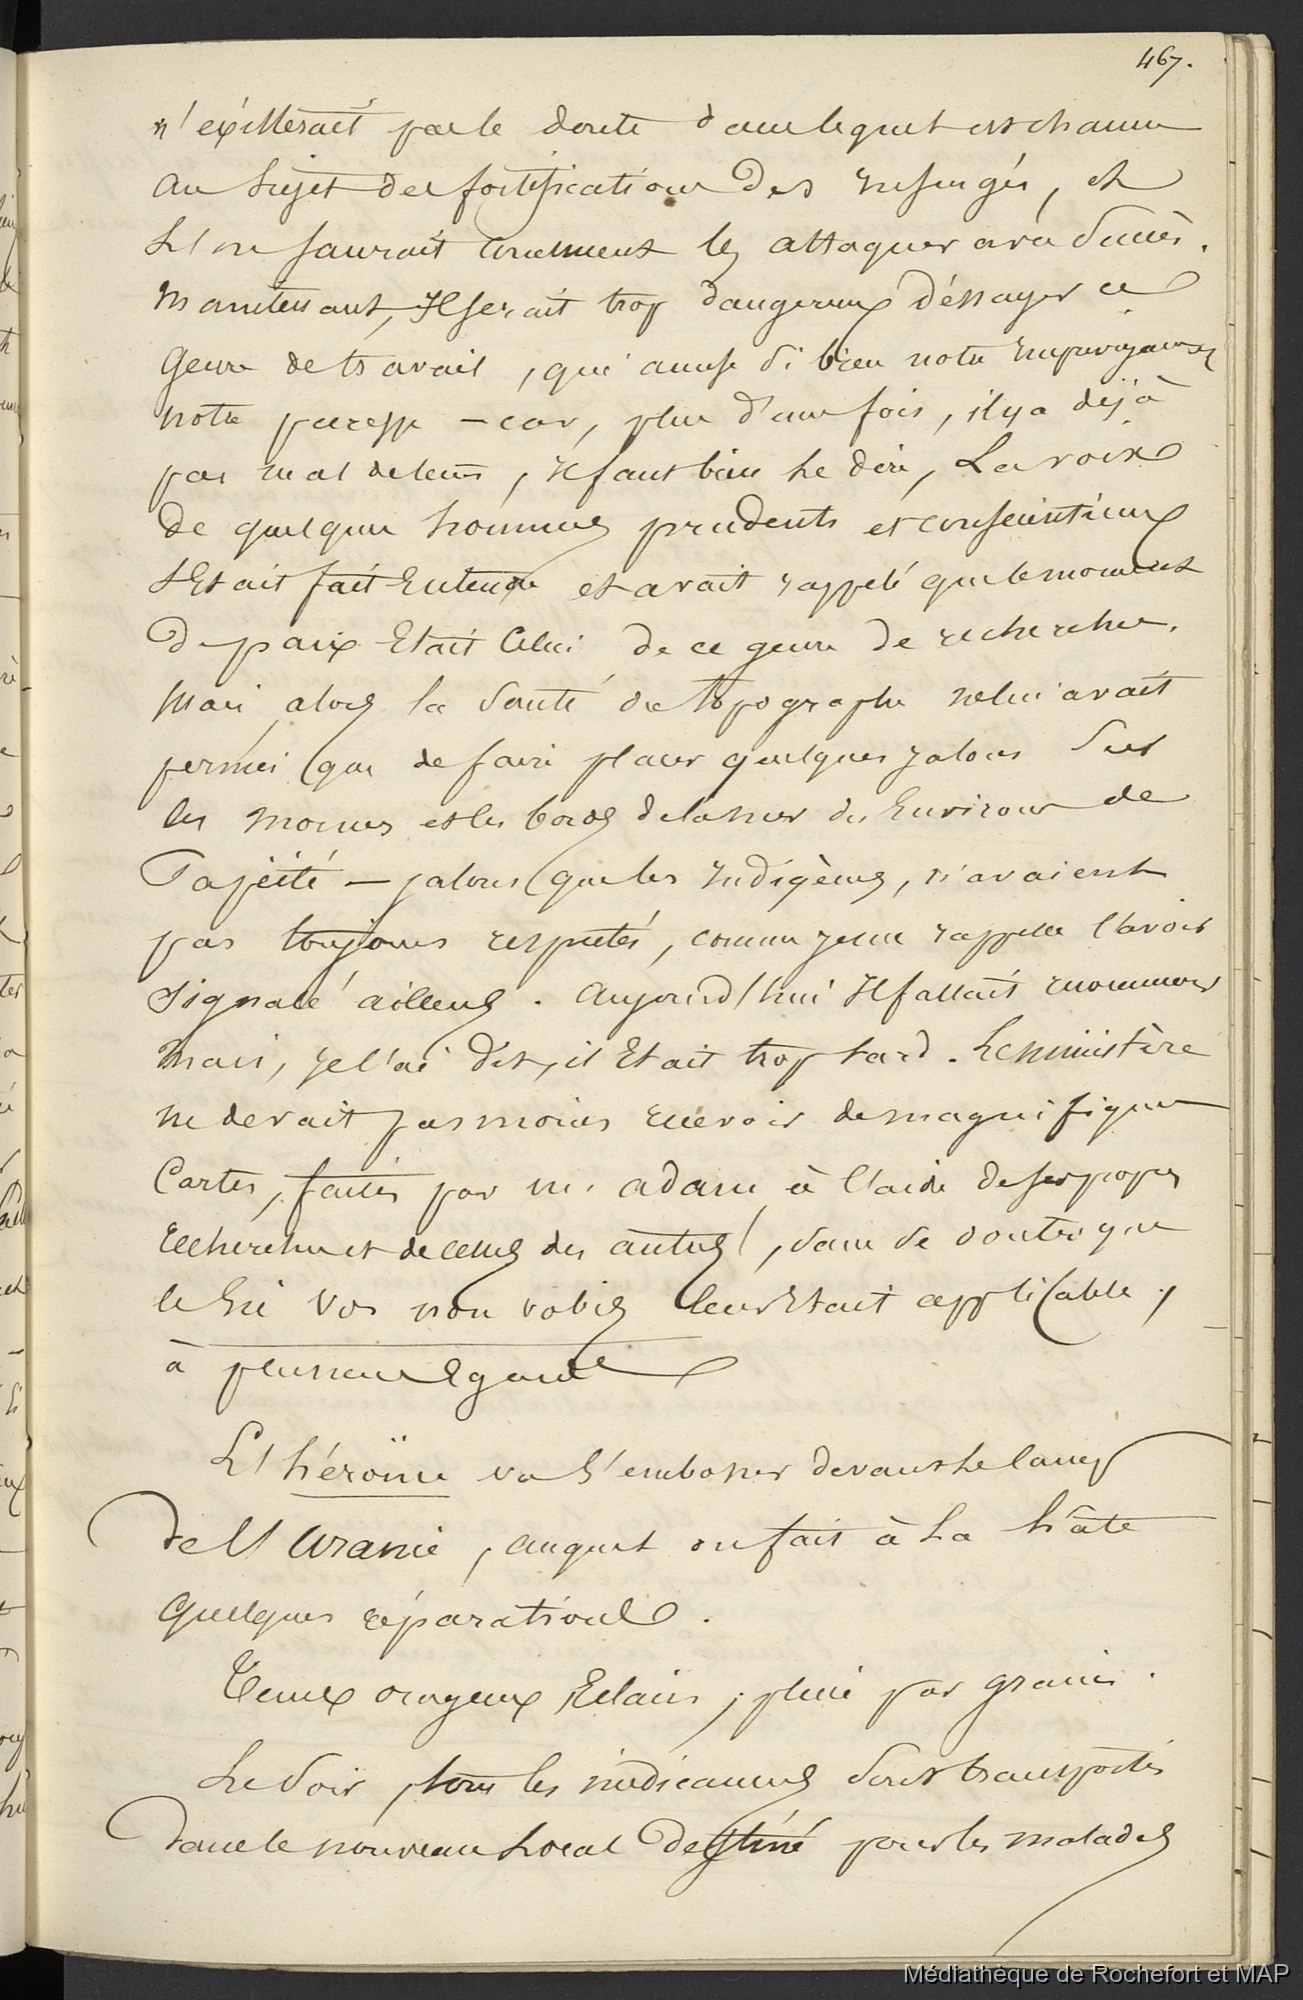 467.
n'existerait pas le doute dans lequel est chacun
au sujet des fortifications des refugiés, et
l'on saurait comment les attaquer avec succès.
Maintenant, Il serait trop dangereux d'éssayer ce
genre de travail, qui accuse si bien notre imprévoyance,
notre paresse — car, plus d'une fois, il y a déjà
pas mal de tems, Il faut bien le dire, La voix
de quelques hommes prudents et conscientieux
s'Etait fait Entendre et avait rappelé que le moment
de paix Etait Celui de ce genre de recherches.
Mais alors la santé du topographe ne lui avait
permis que de faire placer quelques jalons sur
les mornes et les bords de la mer des Environs de
Papéïté — jalons que les Indigènes, n'avaient
pas toujours respectés, comme je me rappelle l'avoir
signalé ailleurs. Aujourd'hui Il fallait
mais, je l'ai dit, il Etait trop tard. Le ministère
ne devait pas moins recevoir de magnifiques
Cartes, faites par m. adam à l'aide de ses propres
recherches et de celles des autres, sans se douter que
le Sic Vos non vobis leur Etait applicable,
à plusieurs Egards
L'héroïne va s'embosser devant le camp
de l'Uranie, auquel on fait à la hâte
quelques réparations.
Tems orageux, Eclairs, pluie par grains.
Le soir, tous les médicamens sont transportés
dans le nouveau local destiné pour les malades
Médiathèque de Rochefort et MAP